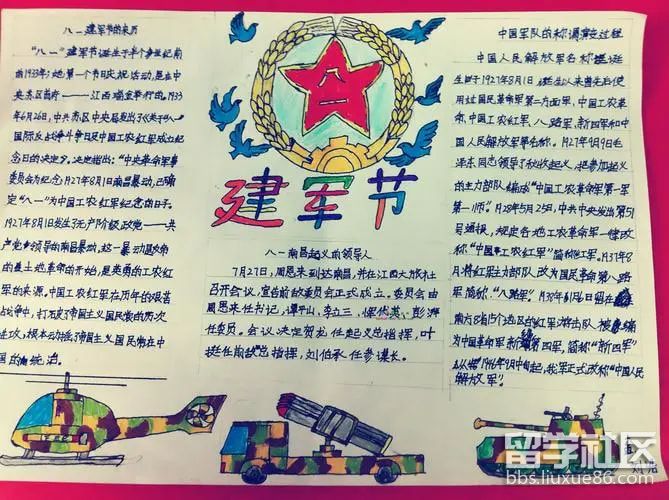 八一建军节的来历
"八一"建军节诞生于半个多世纪前
的1933年,她第一个节日庆祝活动,是在中
央苏区首府——江西瑞金举行的。1933
年6月26日,中共苏区中央局发出了《关于"八一"
国际反战争斗争日及中国工农红军成立纪
念日的决定》。决定指出:"中央革命军事
委员会为纪念1927年8月1日南昌暴动,已确
定"八一"为中国工农红军纪念的日子。
1927年8月1发生了无产阶级政党——共
产党领导的南昌暴动,这一暴动是
的土地革命的开始,是英勇的工农红
军的来源。中国工农红军在历年的艰苦
战争中,打破了帝国主义国民党的历次
进攻,根本动摇了帝国主义国民党在中
国的统治。
八一
建军节
八一南昌起义的领导人
7月27日,周恩来到达南昌,并在江西大旅社
召开会议,宣告前敌委员会正式成立。委员会由
周恩来任书记,谭平山、李立三、恽代英、彭湃
任委员。会议决定贺龙任起义总指挥,叶
挺任前敌总指挥,刘伯承任参谋长。
中国军队的称谓演变过程
中国人民解放军名称是诞
生时于1927年8月1诞生以来曾先后使
用过国民革命军第二方面军,中国工农革
命,中国工农红军、八路军,新四军和中
国人民解放军等名称。1927年9月9日毛
泽东同志领导了秋收起义,把参加起义
的主力部队编成"中国工农革命军第一军
第一师"。月28年5月25日,中共中央发出第51
号通报,规定各地工农革命军一律改
称"中国工农红军"简称红军。月37年8
月,将红军主力部队改为国民革命军第八路
军简称"八路军"。
南方8省15个地区的红军游击队 被编
为中国革命军新编第四军,简称"新四军"
从1946年9月中旬起,我军正式改称"中国人民
解放军"。
留学社区
bbs.liuxue86.com